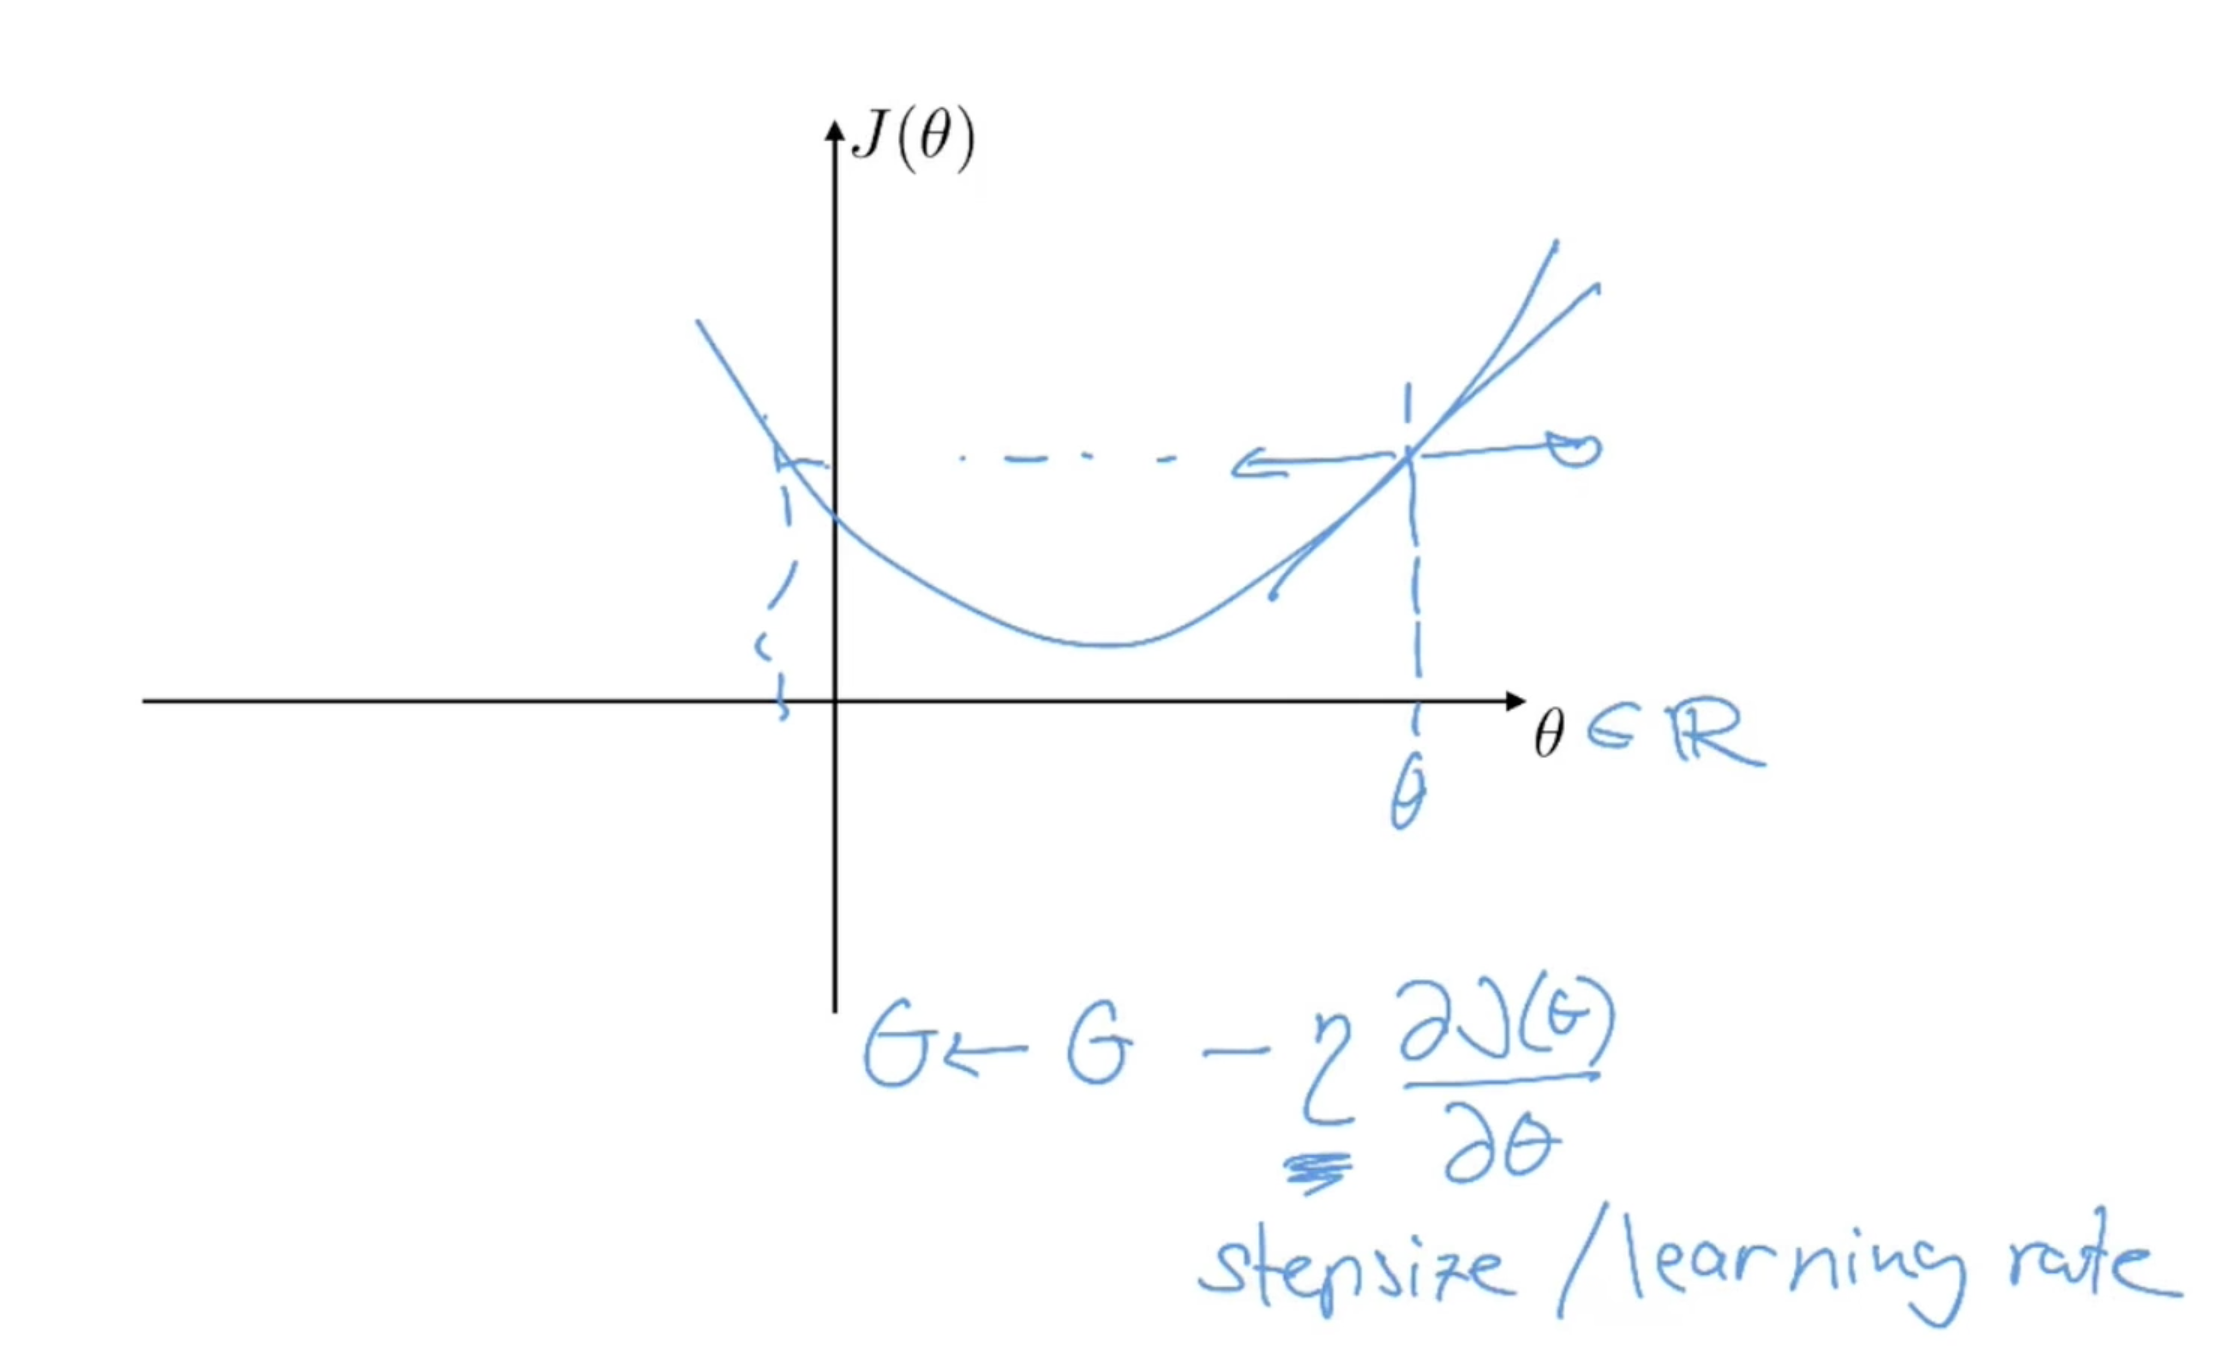 J(θ)
θ ∈ ℝ
θ
θ ← θ − η ∂J(θ)/∂θ
stepsize / learning rate